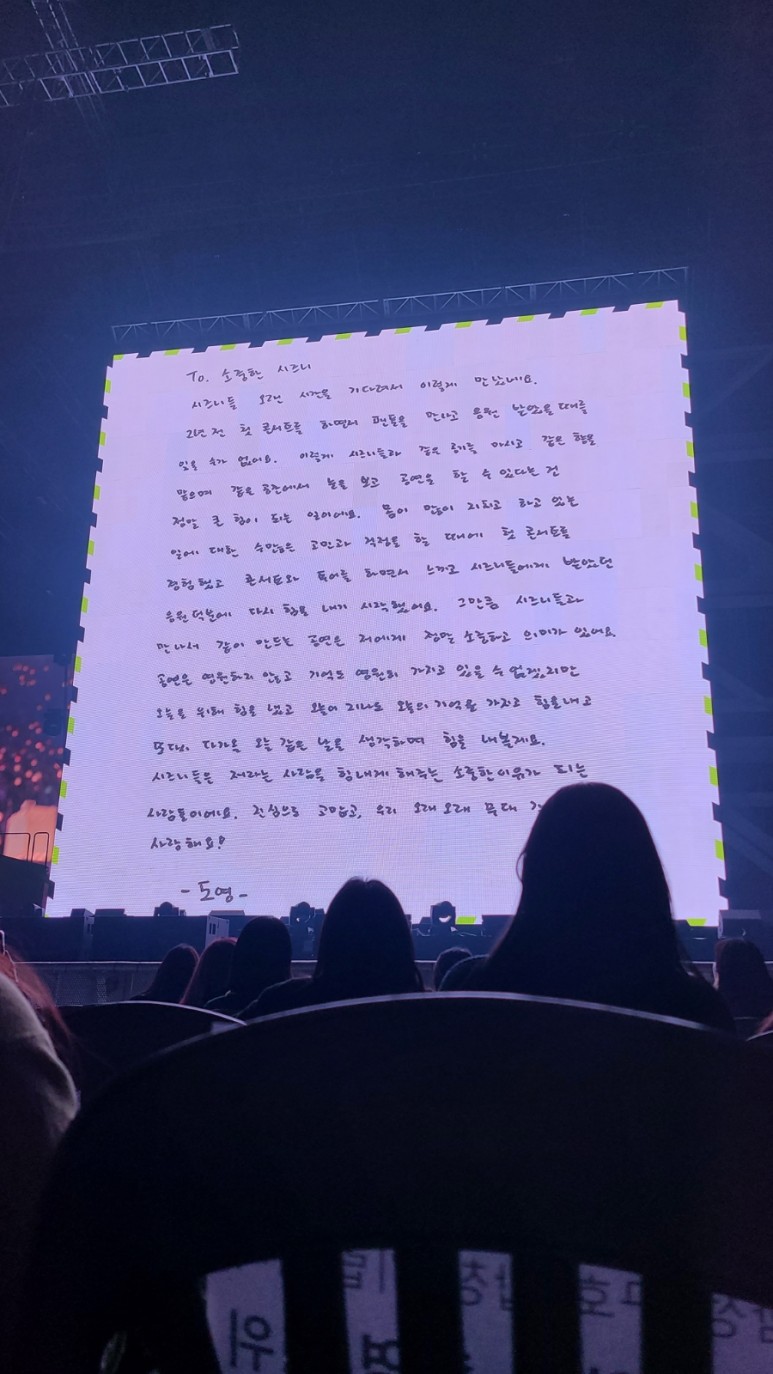 To. 소중한 시즈니
시즈니들 오랜 시간을 기다려서 이렇게 만났네요.
2년 전 첫 콘서트를 하면서 팬들을 만나고 응원 받았을 때를
잊을 수가 없어요. 이렇게 시즈니들과 같은 공기를 마시고 같은 향을
맡으며 같은 공간에서 눈을 보고 공연을 할 수 있다는 건
정말 큰 힘이 되는 일이에요. 몸이 많이 지치고 하고 있는
일에 대한 수많은 고민과 걱정을 할 때에 첫 콘서트를
경험했고 콘서트와 투어를 하면서 느끼고 시즈니들에게 받았던
응원 덕분에 다시 힘을 내기 시작했어요. 그만큼 시즈니들과
만나서 같이 만드는 공연은 저에게 정말 소중하고 의미가 있어요.
공연은 영원하지 않고 기억도 영원히 가지고 있을 수 없겠지만
오늘을 위해 힘을 냈고 오늘이 지나도 오늘의 기억을 가지고 힘을 내고
또 다시 다가올 오늘 같은 날을 생각하며 힘을 내볼게요.
시즈니들은 저라는 사람을 힘내게 해주는 소중한 이유가 되는
사람들이에요. 진심으로 고맙고, 우리 오래 오래 무대
사랑해요!
- 도영 -
위